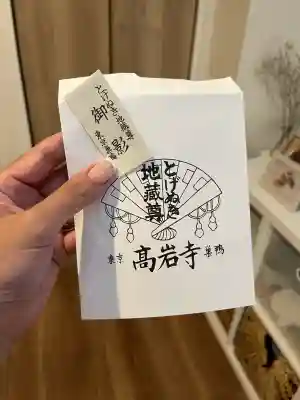 とげぬき地蔵尊
御影
東京巣鴨
とげぬき
地蔵尊
東京
高岩寺
巣鴨